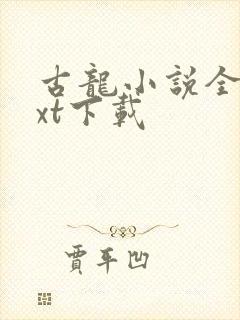 古龍小說全
xt下載
賈平凹